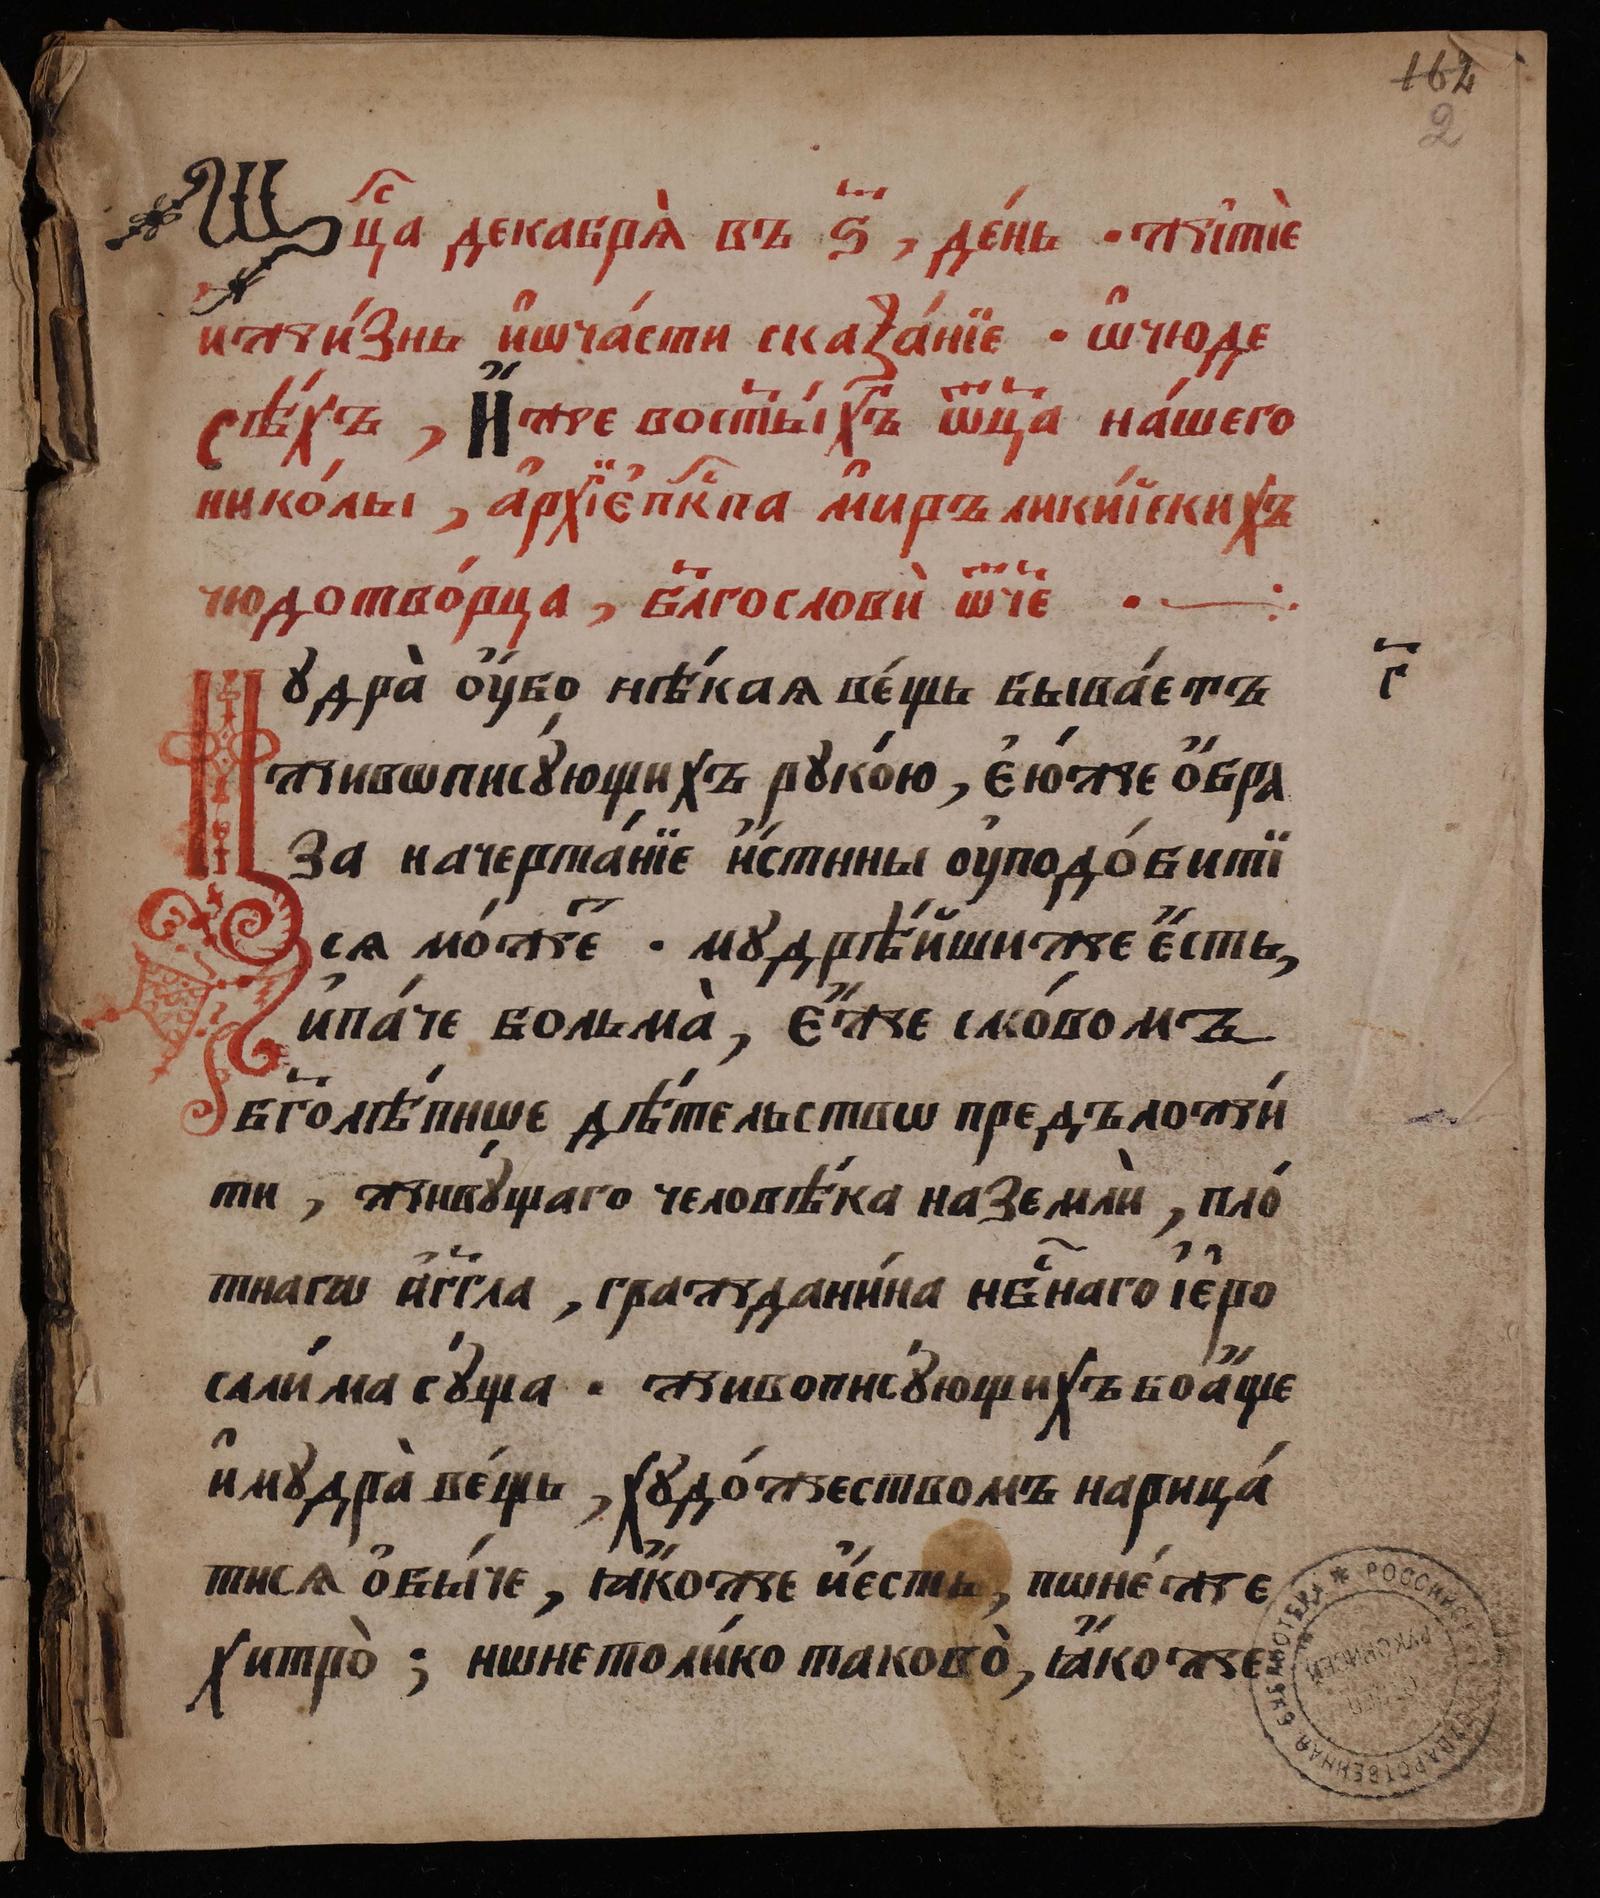 162
2
Мс҃ца декабрѧ̀ въ ѕ҃, де́нь · жи́тїе
и жи́знь и҆ ѿча́сти сказа́нїе · ѡ҆ чюде
сѣ́хъ, и҆́же во ст҃ы́хъ ѻ҆тц҃а на́шего
нико́лы, а҆рхїе҆пⷭ҇кпа ми́ръ лики́искихъ
чюдотво́рца, бл҃гословѝ ѡ҆́ч҃е
Мꙋдра̀ оу҆́бо нѣ́каѧ ве́щь быва́етъ
г҃
живѡписꙋ́ющихъ рꙋко́ю, є҆ю́же ѻ҆́бра
за начерта́нїе и҆́стинны оу҆подо́битї
сѧ мо́же · мꙋдрѣ́йши же є҆́сть,
и҆ па́че больма̀, є҆́же сло́вомъ
бг҃олѣ́пнше дѣ́тельствѡ предъложи́
ти, живꙋ́щаго человѣ́ка на землѝ, пло́
тнагѡ а҆́гг҃ла, граждани́на нбⷭ҇наго і҆є҆ро
сали́ма сꙋ́ща · живописꙋ́ющихъ бо а҆́ще
и҆ мꙋдра̀ ве́щь, хꙋдо́жествомъ нарица́
тисѧ ѻ҆бы́че, ꙗ҆́коже и҆ є҆́сть, но не́же
хитро̀; но не толи́ко таково̀, ꙗ҆́коже
РОССИЙСКАЯ ГОСУДАРСТВЕННАЯ БИБЛИОТЕКА *
ОТДЕЛ РУКОПИСЕЙ